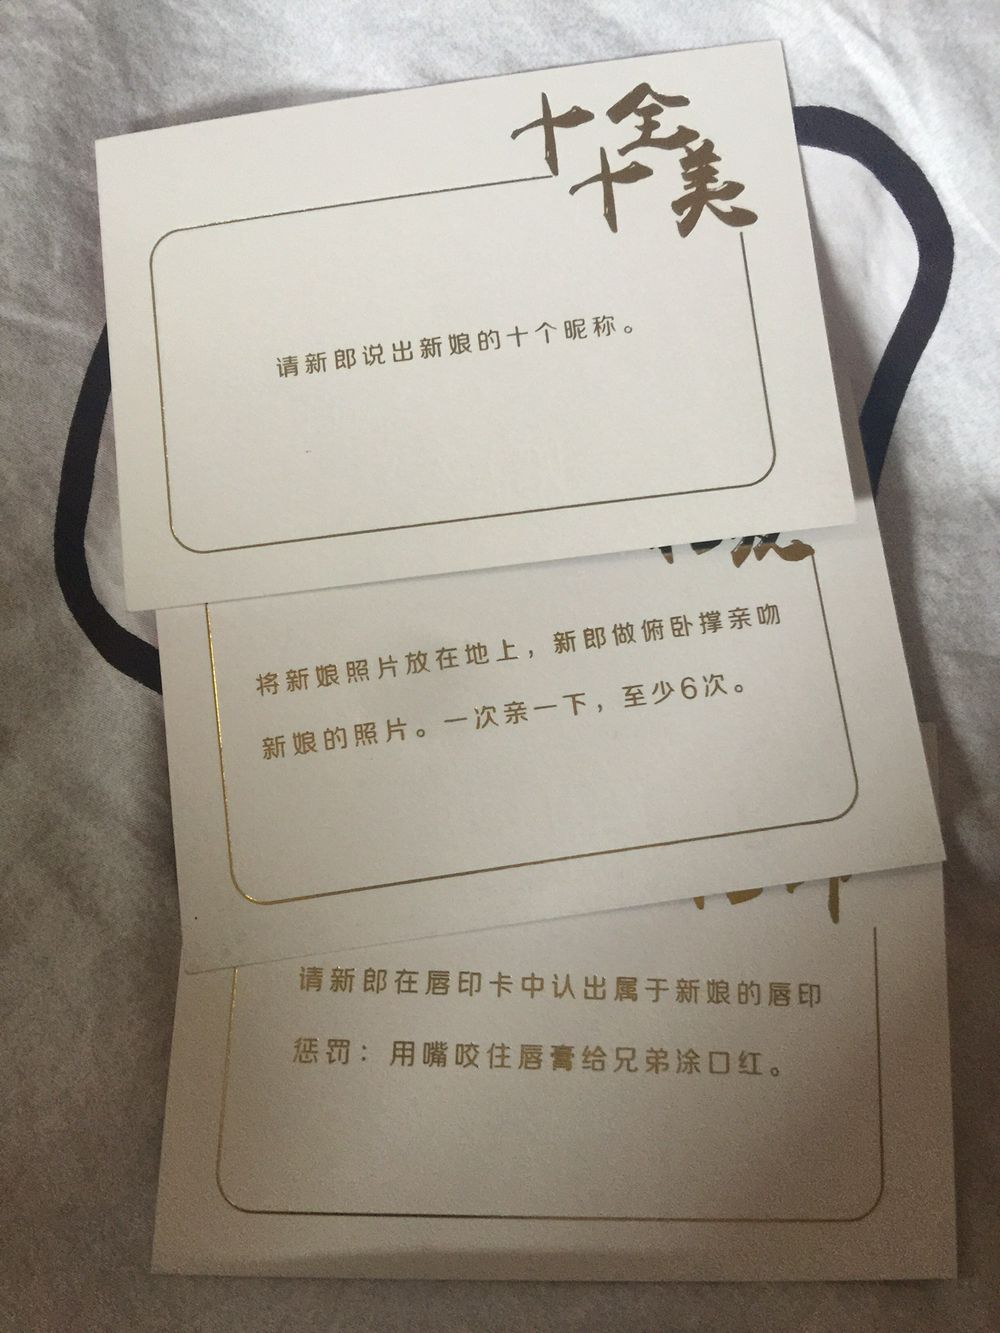 十全
十美
请新郎说出新娘的十个昵称。
将新娘照片放在地上，新郎做俯卧撑亲吻
新娘的照片。一次亲一下，至少6次。
请新郎在唇印卡中认出属于新娘的唇印
惩罚：用嘴咬住唇膏给兄弟涂口红。